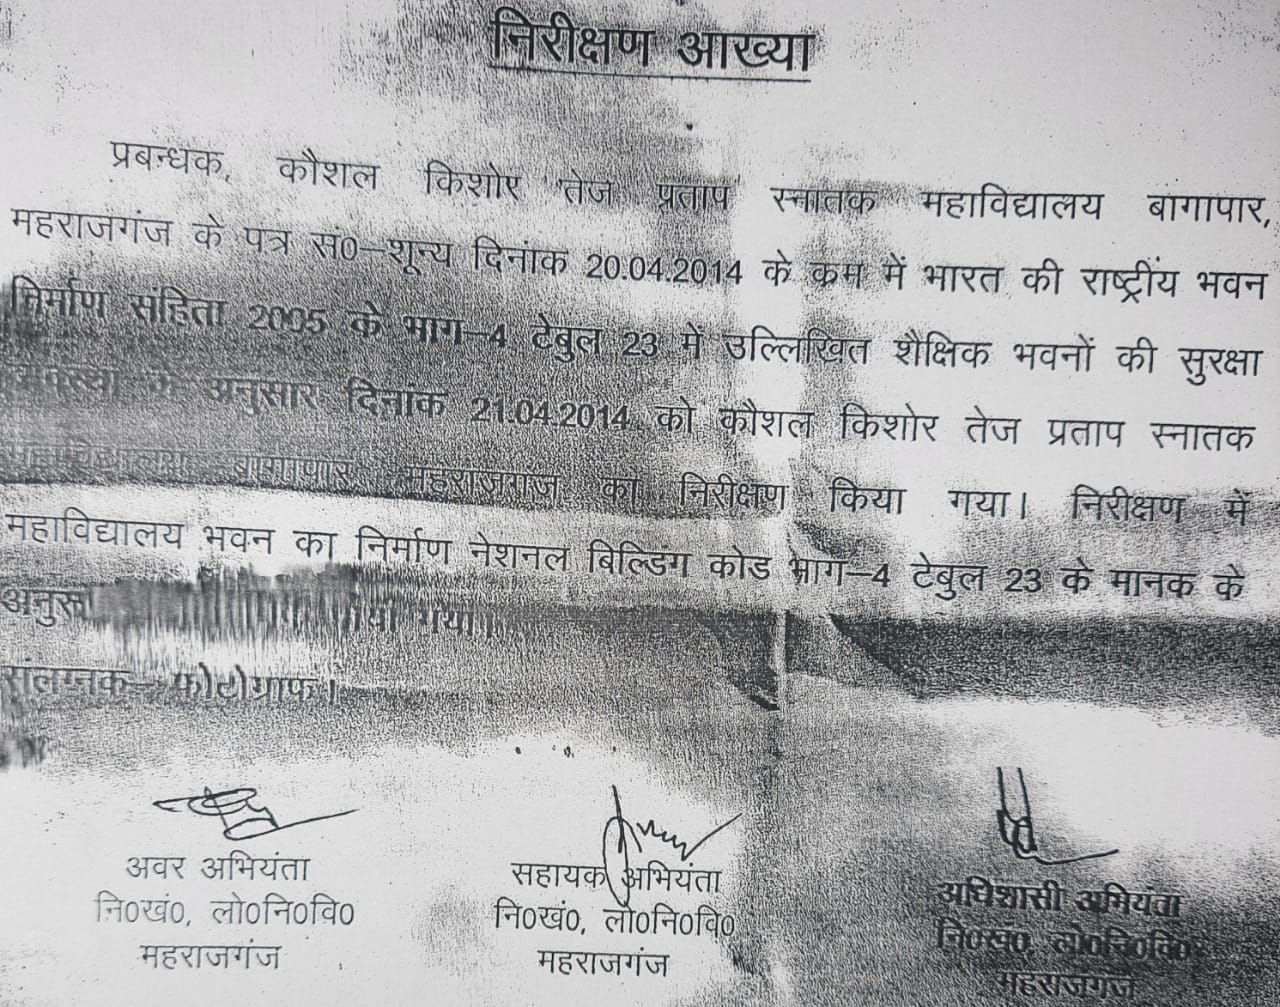 निरीक्षण आख्या
प्रबन्धक, कौशल किशोर तेज प्रताप स्नातक महाविद्यालय बागापार,
महराजगंज के पत्र सं0–शून्य दिनांक 20.04.2014 के क्रम में भारत की राष्ट्रींय भवन
निर्माण संहिता 2005 के भाग–4 टेबुल 23 में उल्लिखित शैक्षिक भवनों की सुरक्षा
के अनुसार दिनांक 21.04.2014 को कौशल किशोर तेज प्रताप स्नातक
महाविद्यालय बागापार महराजगंज का निरीक्षण किया गया। निरीक्षण में
महाविद्यालय भवन का निर्माण नेशनल बिल्डिंग कोड भाग–4 टेबुल 23 के मानक के
गया।
संलग्नक– फोटोग्राफ।
अवर अभियंता
नि0खं0, लो0नि0वि0
महराजगंज
सहायक अभियंता
नि0खं0, लो0नि0वि0
महराजगंज
अधिशासी अभियंता
नि0खं0, लो0नि0वि0
महराजगंज